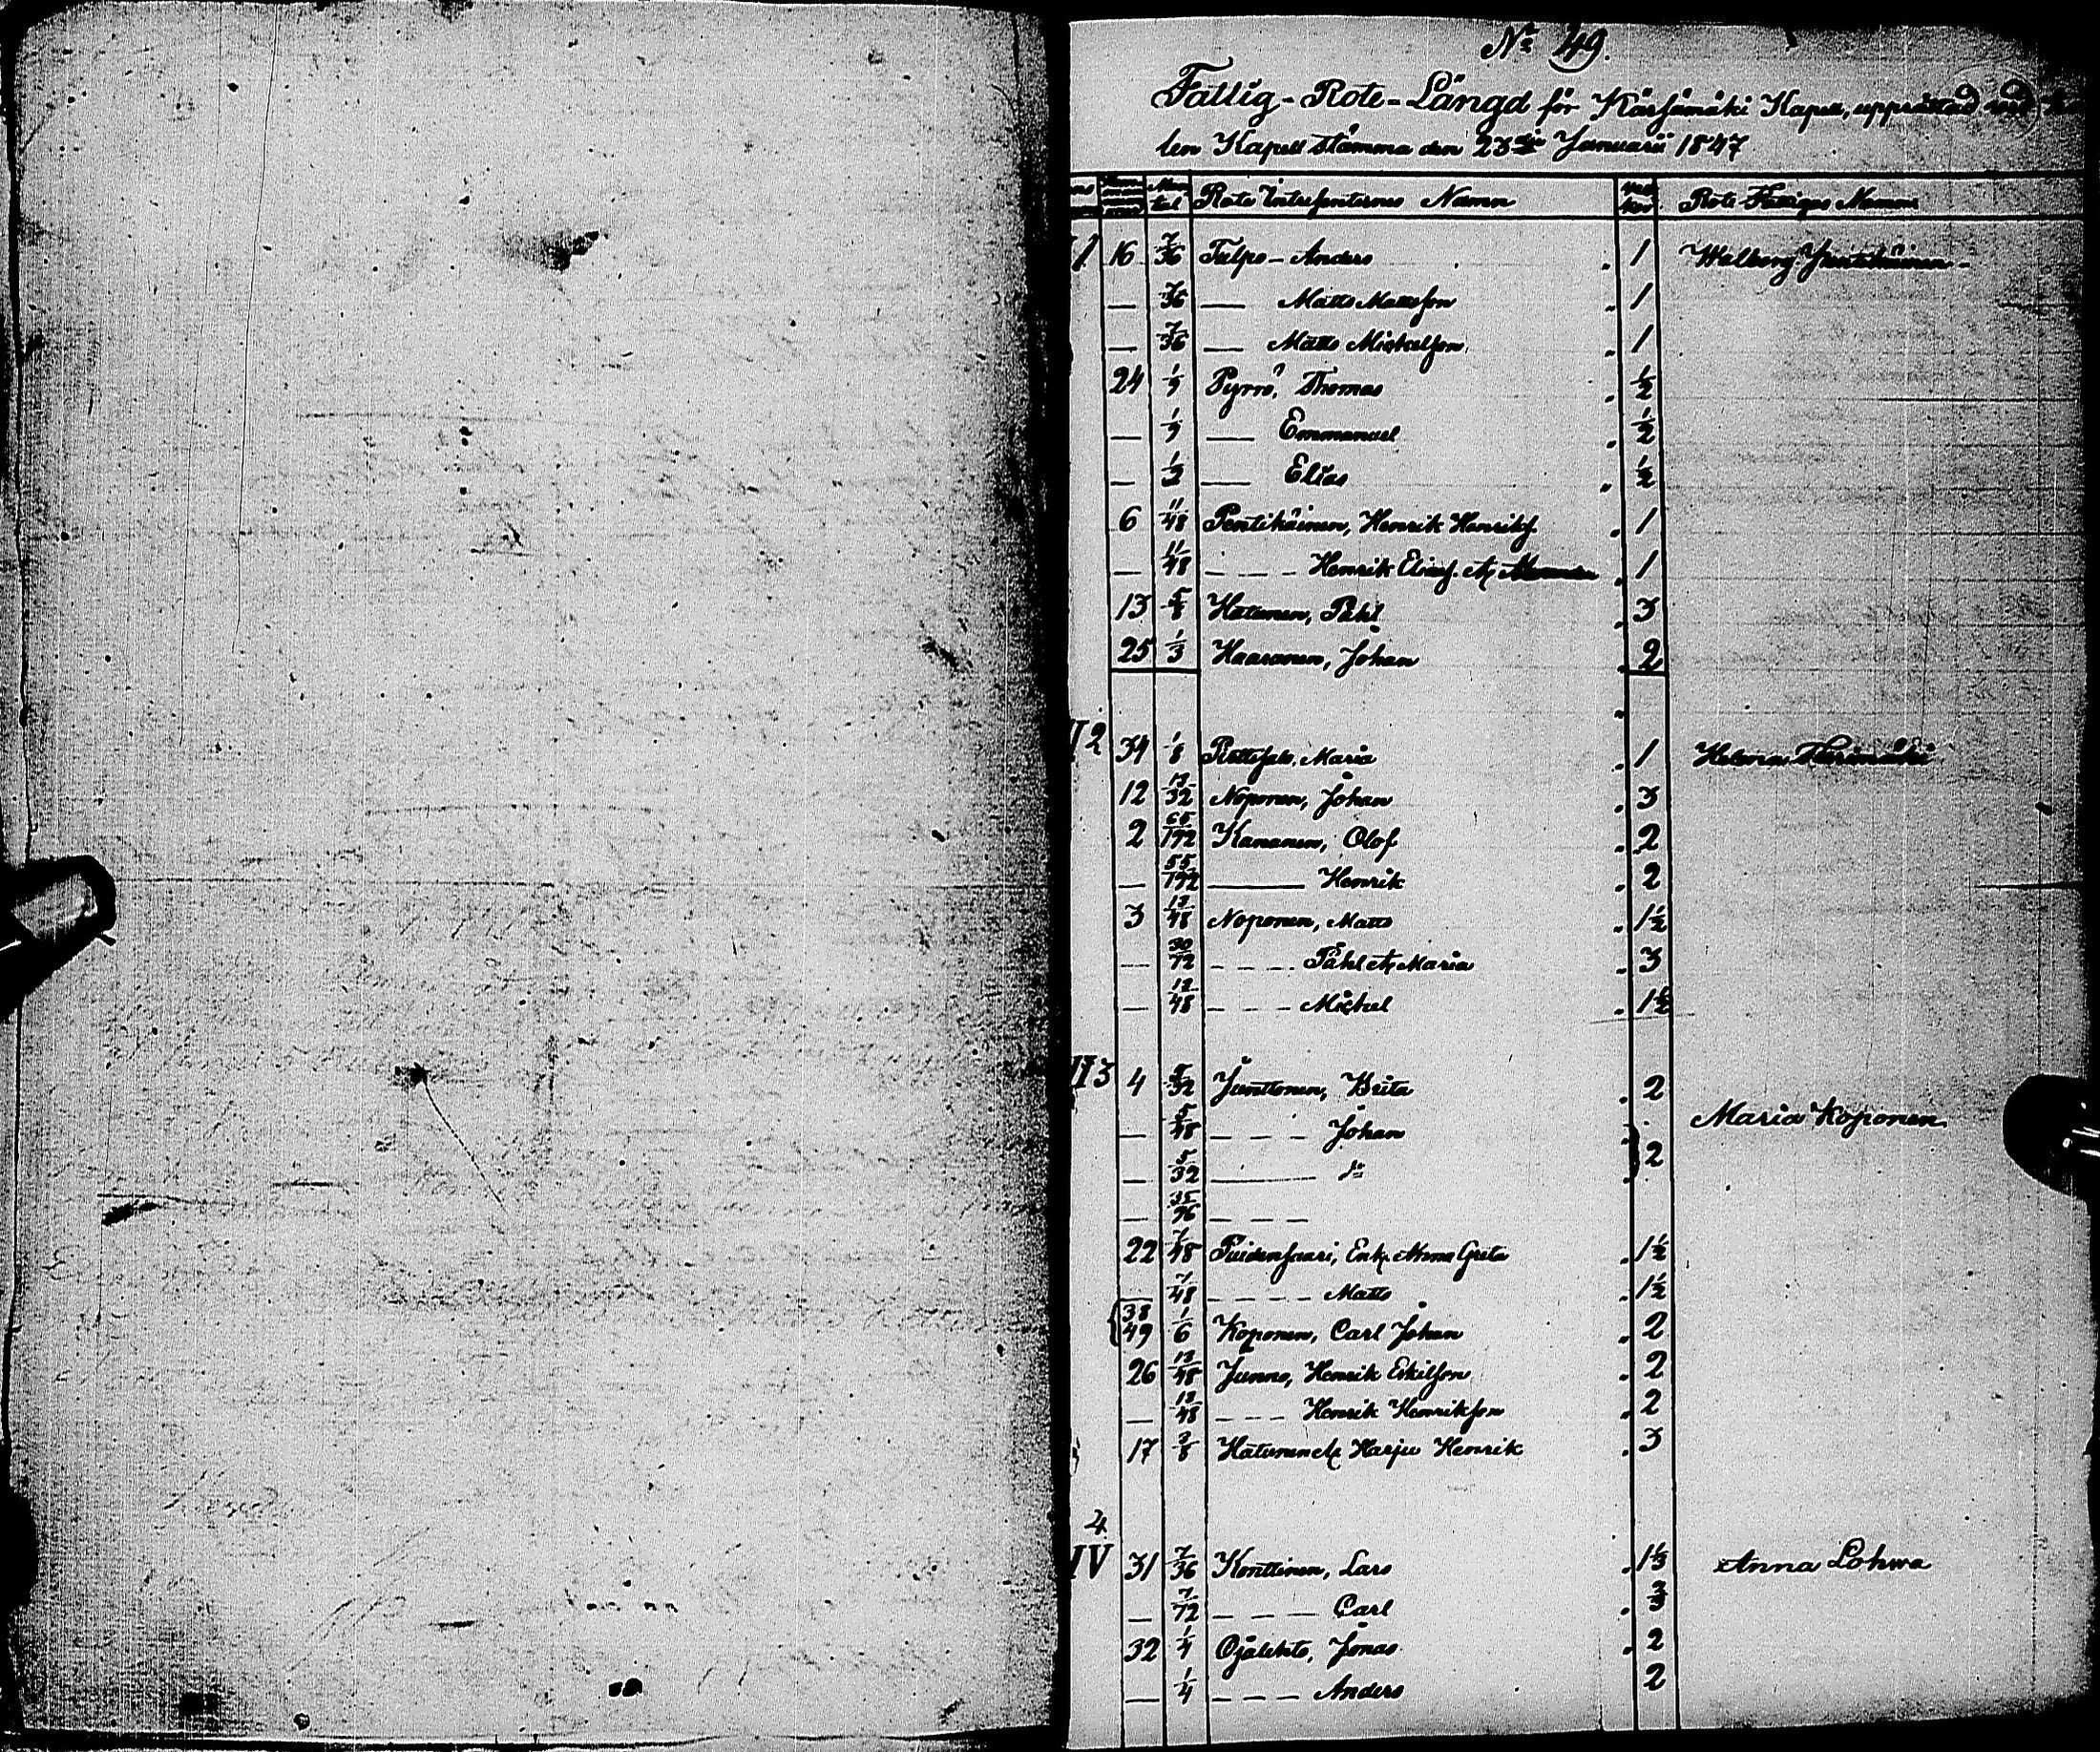 No 49.
Fattig-Rote-Längd för Kärsämäki Kapell, upprättad vid
len Kapell Stämma den 23dje Januarii 1847
Man tal Rote Intressenternes Namn Vec kor Rote Fattiges Namn
1 16 7/36 Tulpo - Anders 1 Walborg
— 7/36 — Matts Mattsson 1
— 7/36 — Matts Michelsson 1
24 1/9 Pyrrö, Thomas 1/2
— 1/9 — Emmanuel 1/2
— 1/9 — Elias 1/2
6 11/48 Pentikäinen, Henrik Henriks. 1
— 11/48 — — — Henrik Eliass. et 1
13 5/8 Hatunen, Påhl 3
25 1/3 Haaranen, Johan 2
2 34 1/8 Maria 1 Helena
12 13/32 Noponen, Johan 3
2 65/192 Kananen, Olof 2
— 55/192 — Henrik 2
3 12/48 Noponen, Matts 1 1/2
— 30/72 — — — Påhl et Maria 3
— 12/48 — — — Michel 1 1/2
3 4 5/32 Junttonen, Brita 2
— 5/48 — — — Johan 2 Maria Koponen
— 5/32 — do
— 35/96 — — —
22 7/48 Puidensaari, Enk. Anna Greta 1 1/2
— 7/48 — — — — Matts 1 1/2
38 49 1/6 Koponen, Carl Johan 2
26 12/48 Junno, Henrik Erikssson 2
— 12/48 — — — Henrik Henriksson 2
17 3/8 Hatunen et Harju Henrik 3
4
IV 31 7/36 Konttinen, Lars 1 1/3 Anna Lohwa
— 7/72 — — — Carl 2/3
32 1/4 Ojalehto, Jonas 2
— 1/4 — — — Anders 2